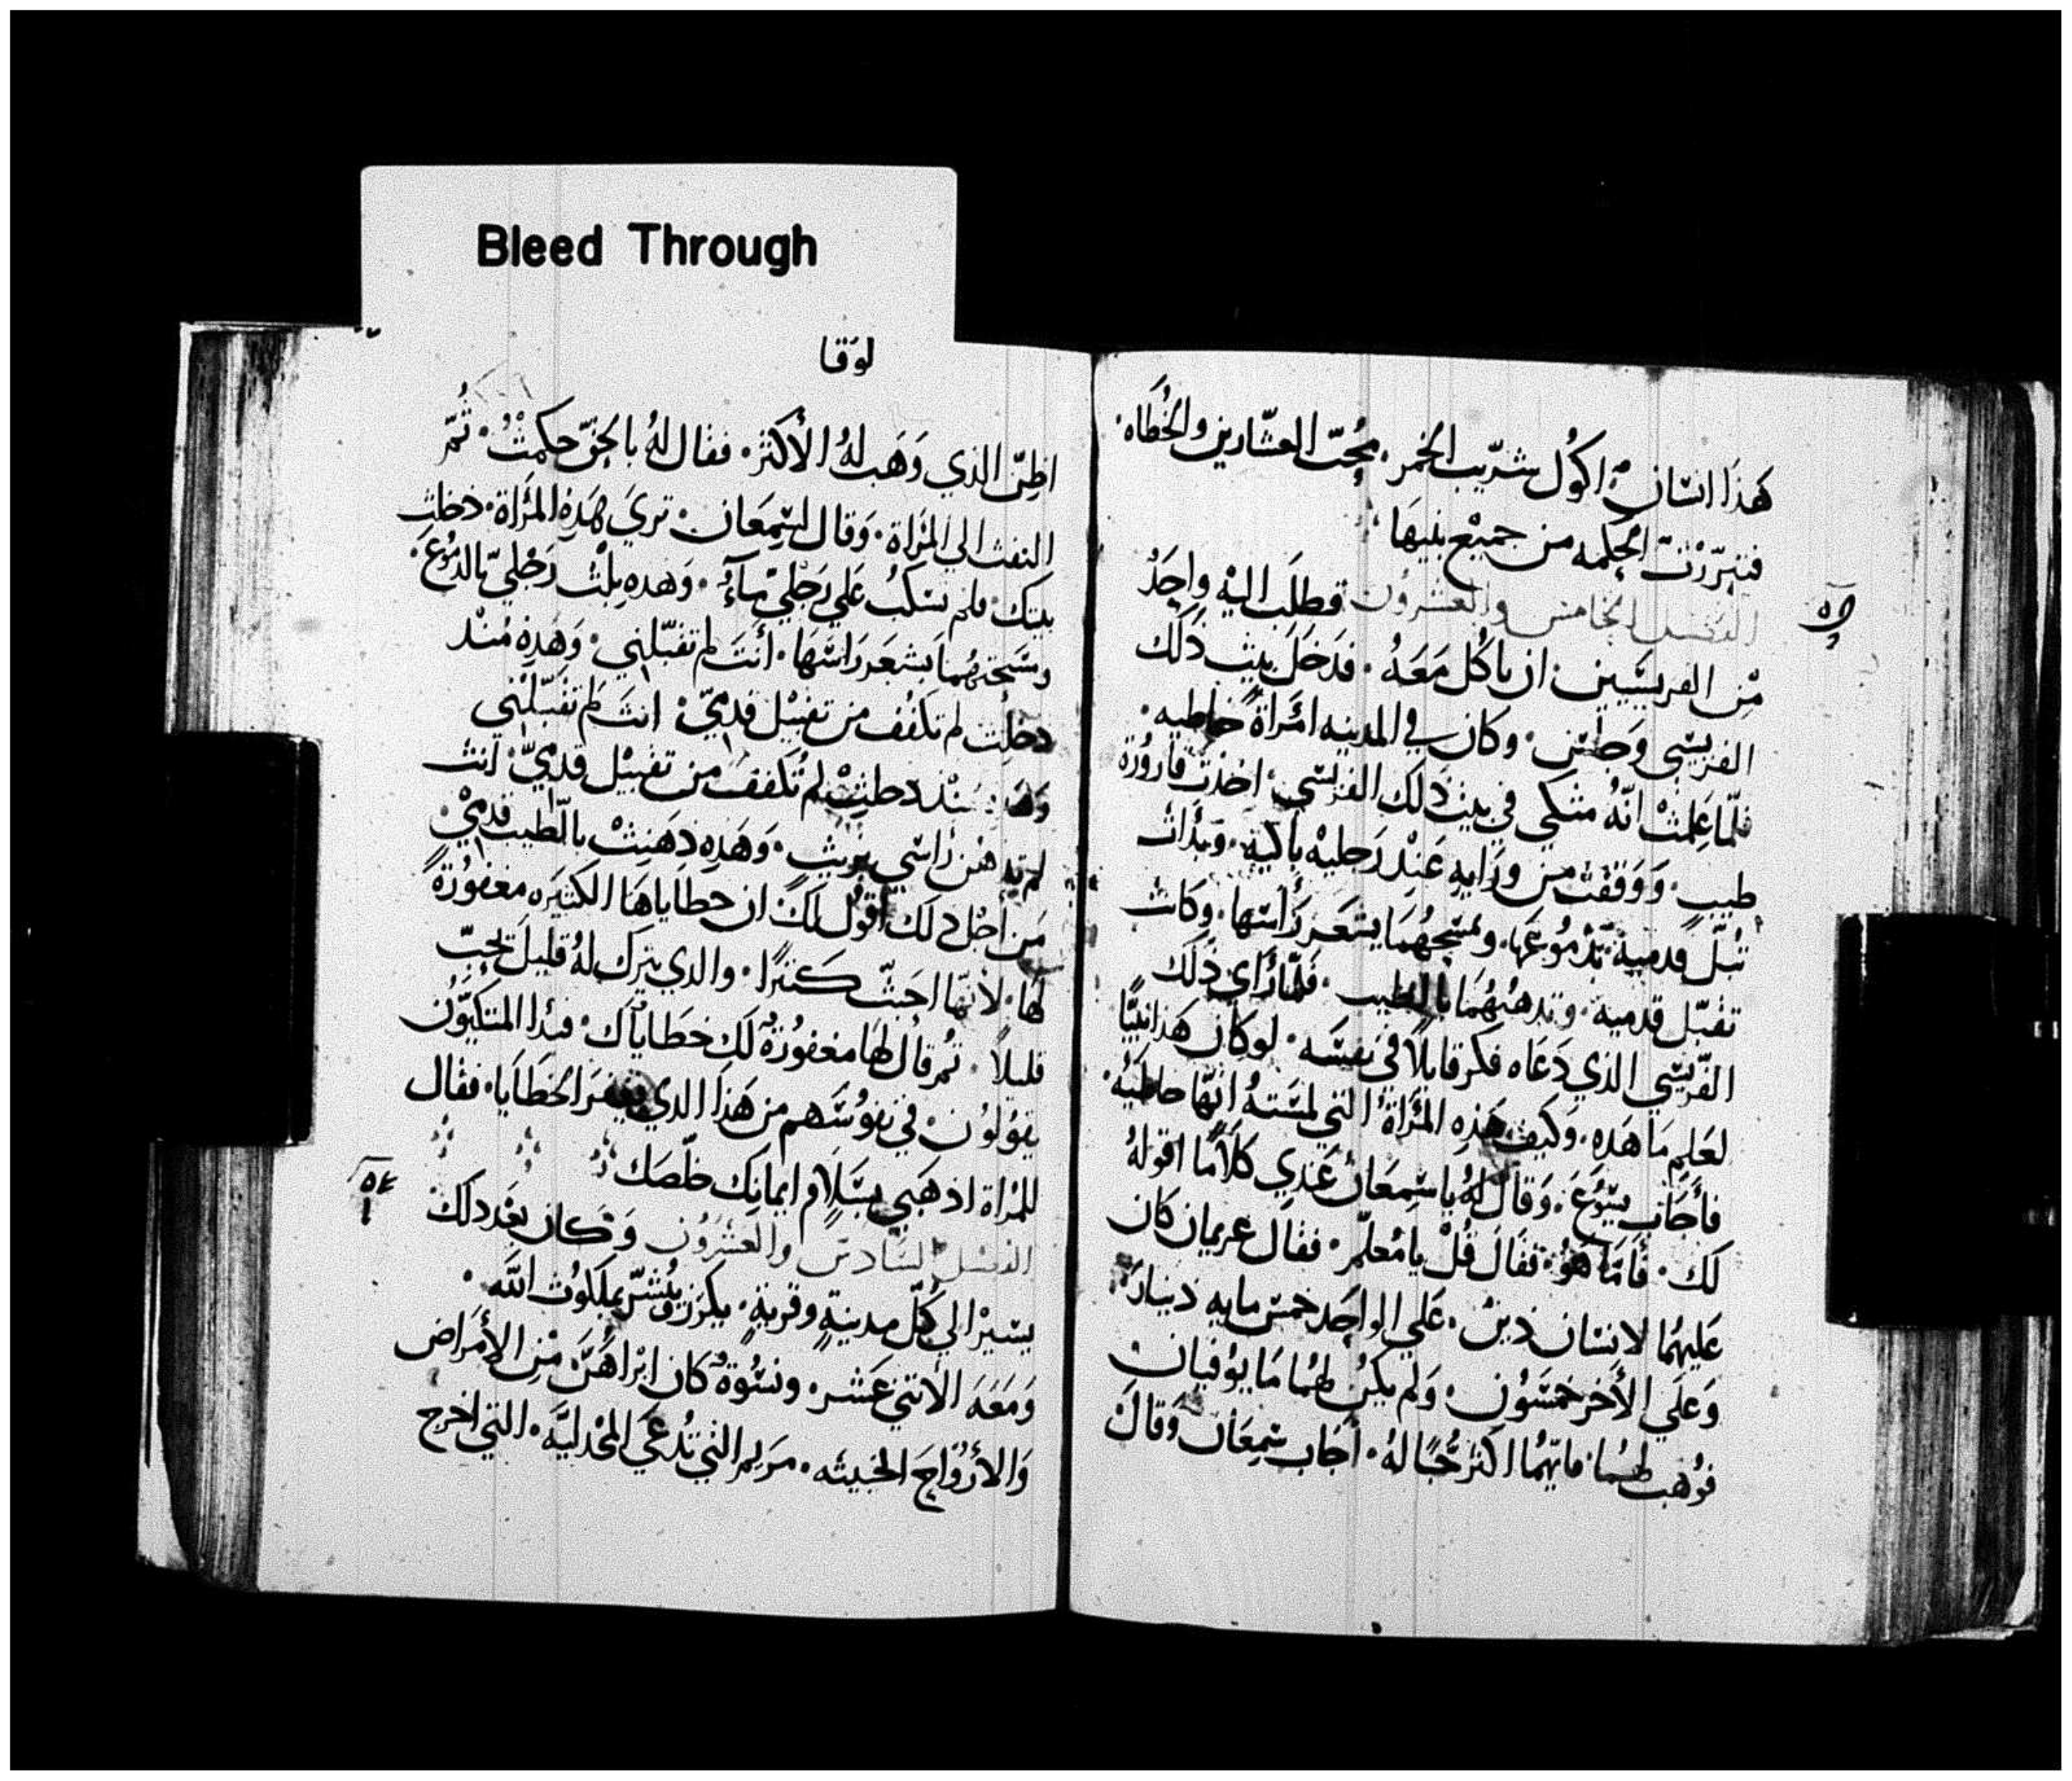 Bleed Through
هَذا انسَان اكوُل شرّيب الخمر · مُحِبّ العشّارين والخُطَاه ·
فتبرّرْت الحِكمه من جميْع بنيهَا
الفصل الخامس والعشرون فطلَب اليْهِ واحِدٌ
مّن الفريسّيين · ان ياكُل مَعَهُ · فدَخَل بيت ذلك
الفريسّي وَجلسَ · وكان في المدينه امْرَاة خاطيه ·
فلمّا عَلِمتْ انّهُ متكي في بيت ذلك الفريسي · اخذت قارُورة
طيبٍ · وَوَقفتْ من ورَايهِ عَنْد رَجليْه باكيَة · وَبدَات
تبُلّ قدميهْ بدمُوعَهَا · وتمسّحهُمَا بشعَر رَاسهَا · وكانت
تقبّل قدميهْ · وتدهنهُمَا بالطيب · فلمّا رَاي ذلك
الفرّيسي الذي دَعَاه فكر قايلاً في نفسَه · لو كان هَذا نبيًّا
لعَلِم مَا هَذه · وكيف هَذِه المرَاة التي لمسَتهُ انّهَا خاطيَهْ ·
فأجَاب يسُوع · وَقال لهُ يا سمعَان عَندِي كلاَمًا اقولهُ
لك · فامّا هَوُ فقالَ قُلْ يا مُعلّم · فقال غريمان كان
عَليهمُا لانسَان ديْن · عَلي الواحِد خمس مايه دينار ·
وَعلَي الأخر خمسُون · وَلم يكن لهُمَا مَا يوُفيان
فوُهَب لهمَا · فايّهمُا اكثر حُبًا لهُ · أجَاب سمعَان وَقالَ
٥٥
لوُقا
اظنّ الذي وَهَب لهُ الأكثر · فقال لهُ بالحِقّ حكمتْ · ثُمّ
التفت الي المرَاة · وَقال لسِمعَان · تريَ هَذهِ المرَاة · دخلت
بيتك · فلم تسكبُ عَلي رَجْليّ مآءً · وَهذهِ بلتْ رَجْليّ بالدمُوعَ ·
ومسَحتهُمَا بشعَر رَاسَهَا · أنتَ لم تقبّلني · وَهَذِهِ مُنْد
دخلت لم تكفُف من تقبيْل قدميّ · انتَ لم تقبّلْني
وَهَذه مُنْد دخلتْ لم تُكففْ من تقبيْل قدميّ · انت
لم تدهنْ رَاسي بزيت · وَهَذِهِ دَهَنتْ بالطيب قدميْ ·
من أجْل ذلك أقوُل لك ان خطاياهَا الكثيَره مغفوُرة
لهَا · لأنّهَا احبّت كثيْرًا · والذي يترك لهُ قليل يحبّ
قليلاً · ثمّ قال لهَا مغفوُرَة لَك خطاياك · فبدا المتكيُون
يقولوُن · في نفوُسَهم من هَذا الذي يغفر الخطَايا · فقال
للمرْاة اذهَبي بسَلاَم ايمانِك خلّصَك
الفصل السَادس والعشرُون وَكان بعْد ذلك
يسيْر الي كُلّ مدينةٍ وقريةٍ · يكرَز ويُبشّر بملكوُت الله ·
وَمَعَهَ الأثني عَشر · ونسُوة كان ابْراهَنّ مّن الأمرَاض
وَالأرْوَاحَ الخبيثه · مرَيم التي تُدعَيَ المجْدليّه · التي اخرج